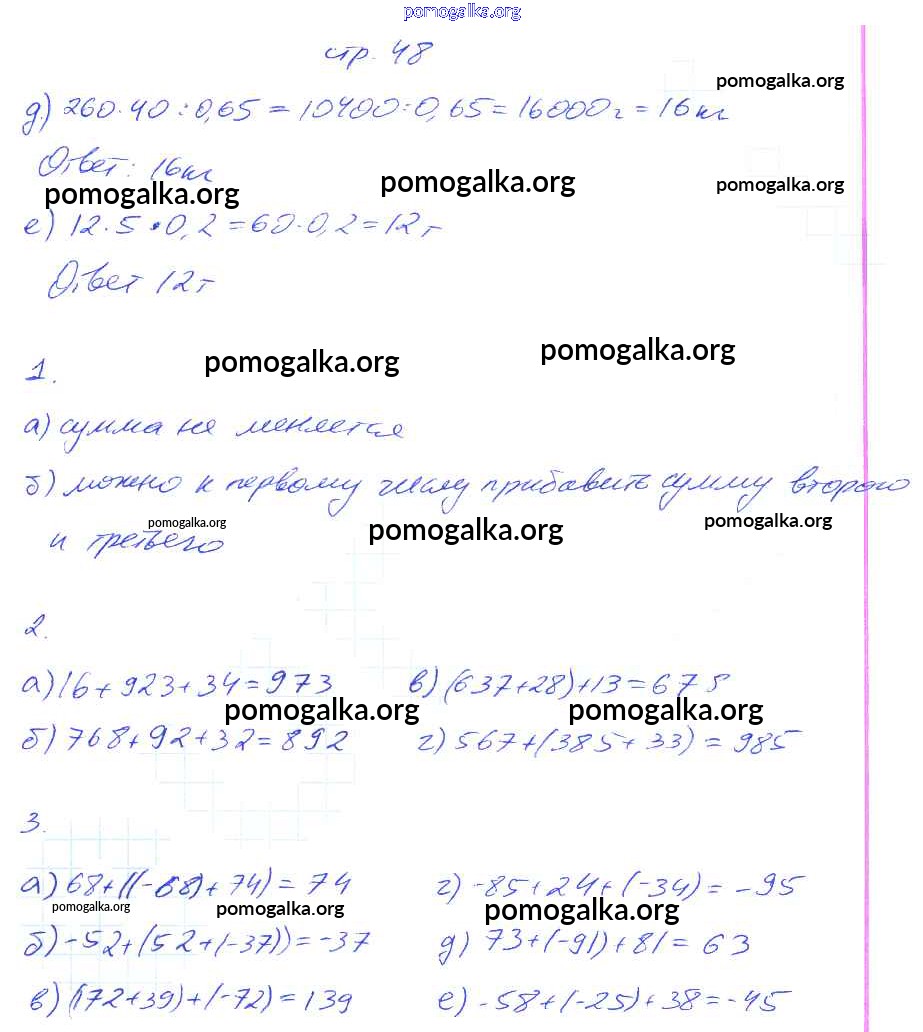 pomogalka.org
стр. 48
pomogalka.org
д) 260·40:0,65 = 10400:0,65 = 16000г = 16кг
Ответ: 16кг
pomogalka.org pomogalka.org pomogalka.org
е) 12·5·0,2=60·0,2=12г
Ответ 12г
pomogalka.org pomogalka.org
1.
а) сумма не меняется
б) можно к первому числу прибавить сумму второго
pomogalka.org pomogalka.org pomogalka.org
и третьего
2.
а) 16+923+34=973 в) (637+28)+13=678
pomogalka.org pomogalka.org
б) 768+92+32=892 г) 567+(385+33)=985
3.
а) 68+((-68)+74)=74 г) -85+24+(-34)=-95
pomogalka.org pomogalka.org pomogalka.org
б) -52+(52+(-37))=-37 д) 73+(-91)+81=63
в) (172+39)+(-72)=139 е) -58+(-25)+38=-45